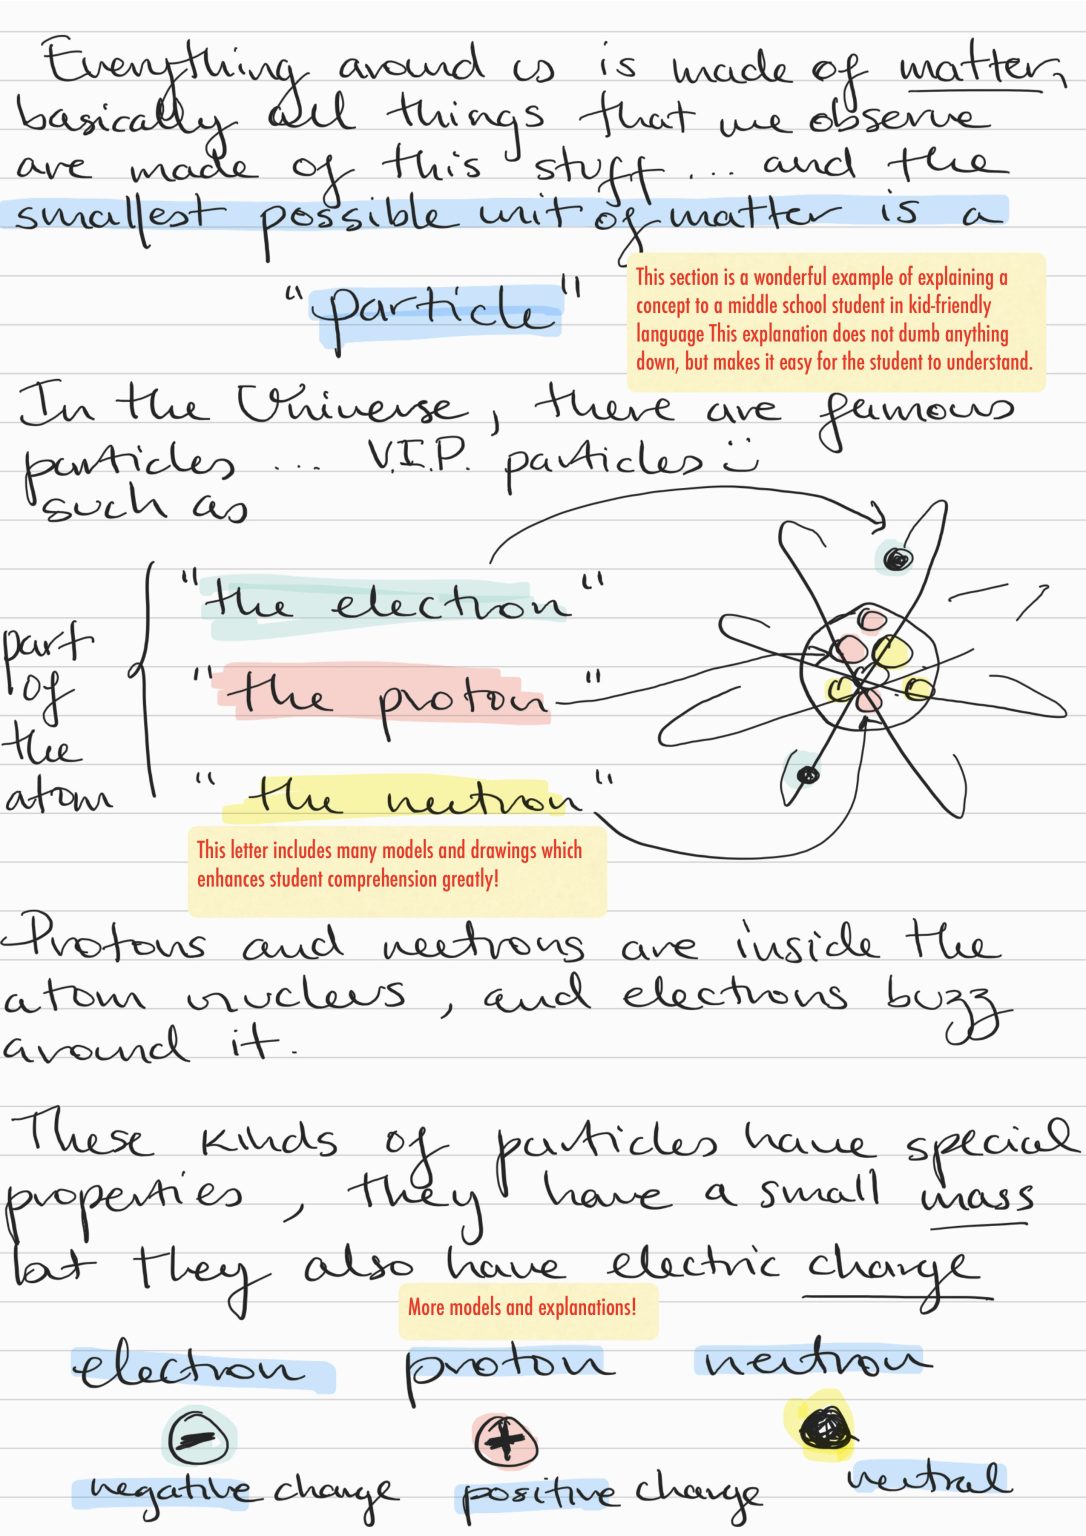 Everything around us is made of matter,
basically all things that we observe
are made of this stuff... and the
smallest possible unit of matter is a
"particle"
This section is a wonderful example of explaining a
concept to a middle school student in kid-friendly
language This explanation does not dumb anything
down, but makes it easy for the student to understand.
In the Universe, there are famous
particles ... V.I.P. particles :)
such as
part
of
the
atom
"the electron"
"the proton"
"the neutron"
This letter includes many models and drawings which
enhances student comprehension greatly!
Protons and neutrons are inside the
atom nucleus, and electrons buzz
around it.
These kinds of particles have special
properties, they have a small mass
but they also have electric charge
More models and explanations!
electron proton neutron
- +
negative charge positive charge neutral